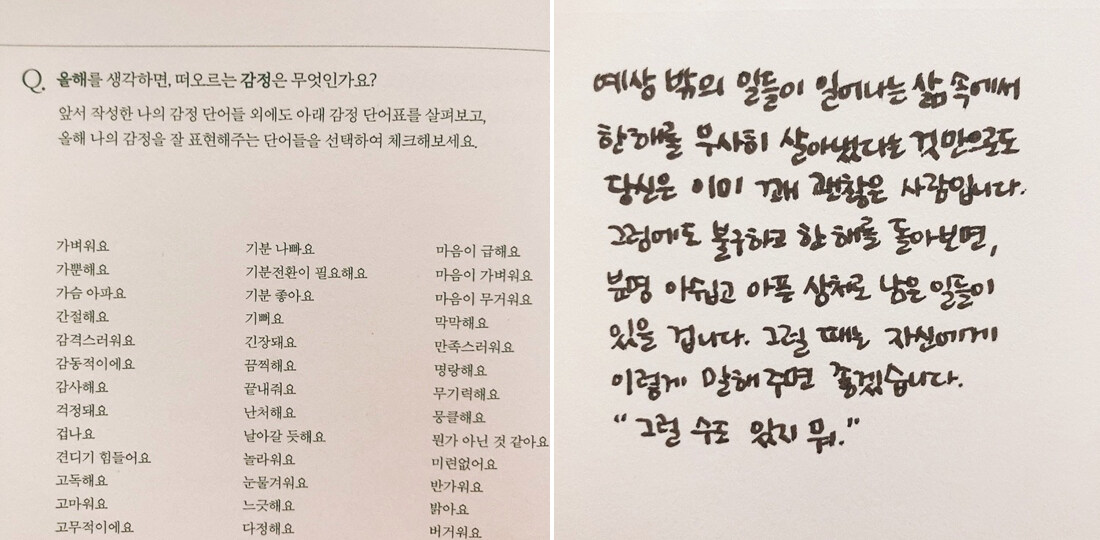 Q. 올해를 생각하면, 떠오르는 감정은 무엇인가요?
앞서 작성한 나의 감정 단어들 외에도 아래 감정 단어표를 살펴보고,
올해 나의 감정을 잘 표현해주는 단어들을 선택하여 체크해보세요.
가벼워요
가뿐해요
가슴 아파요
간절해요
감격스러워요
감동적이에요
감사해요
걱정돼요
겁나요
견디기 힘들어요
고독해요
고마워요
고무적이에요
기분 나빠요
기분전환이 필요해요
기분 좋아요
기뻐요
긴장돼요
끔찍해요
끝내줘요
난처해요
날아갈 듯해요
놀라워요
눈물겨워요
느긋해요
다정해요
마음이 급해요
마음이 가벼워요
마음이 무거워요
막막해요
만족스러워요
명랑해요
무기력해요
뭉클해요
뭔가 아닌 것 같아요
미련없어요
반가워요
밝아요
버거워요
예상 밖의 일들이 일어나는 삶 속에서
한 해를 무사히 살아냈다는 것만으로도
당신은 이미 꽤 괜찮은 사람입니다.
그럼에도 불구하고 한 해를 돌아보면,
분명 아쉽고 아픈 상처로 남은 일들이
있을 겁니다. 그럴 때는 자신에게
이렇게 말해주면 좋겠습니다.
"그럴 수도 있지 뭐."